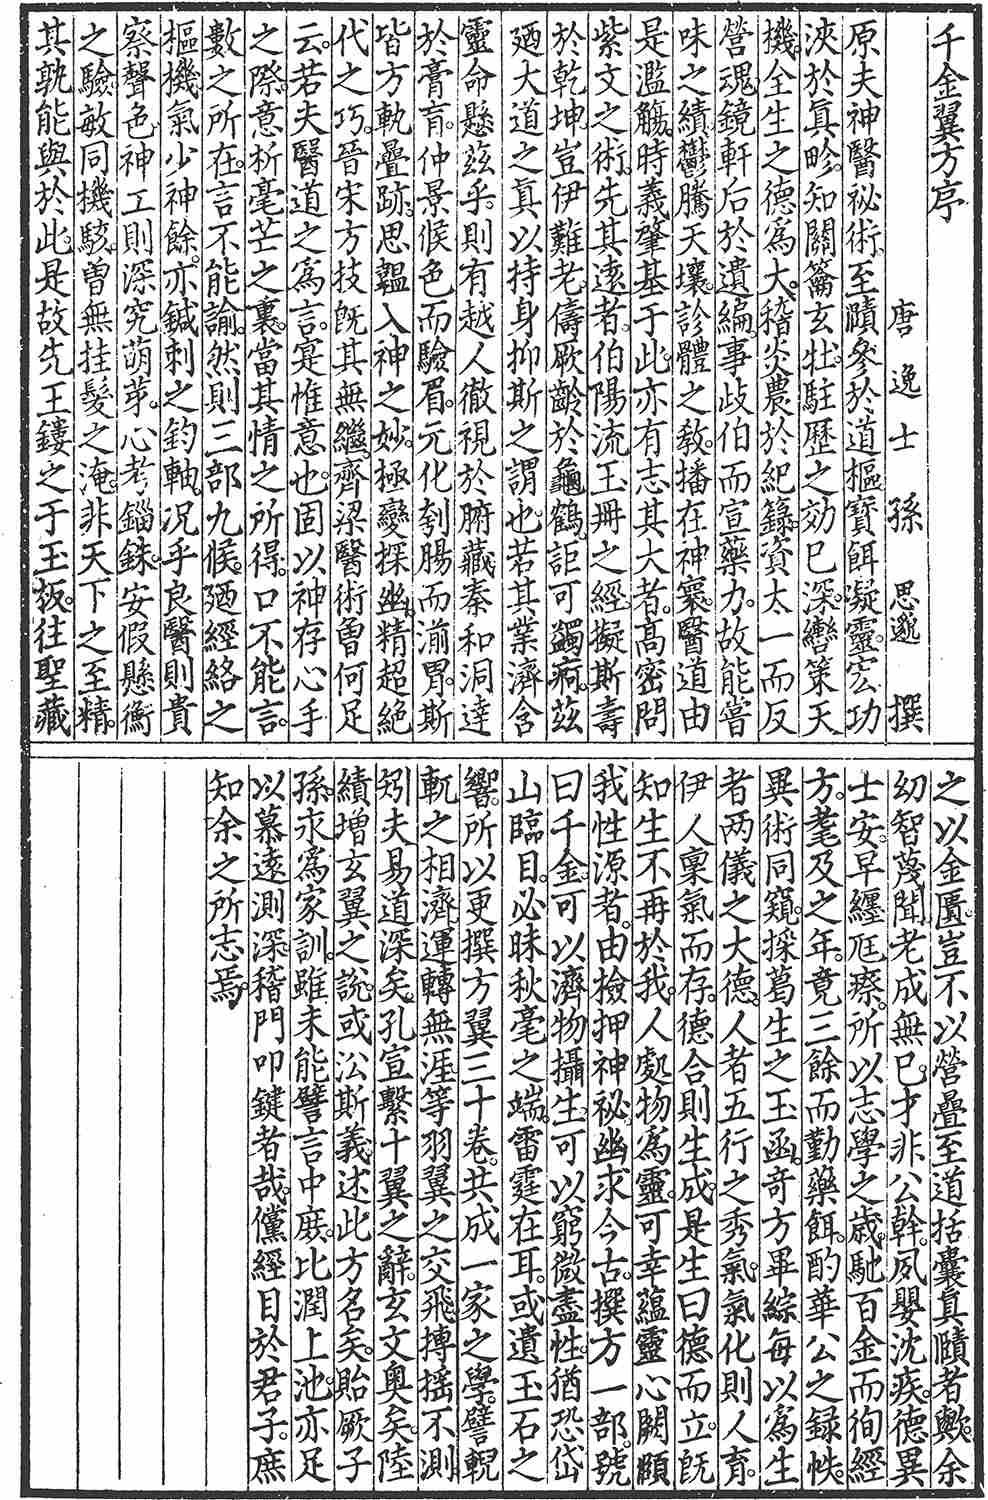 千金翼方序
唐逸士孫思邈撰
原夫神醫祕術。至賾參於道樞。寶餌凝靈。宏功
浹於真畛。知關籥玄牡。駐歷之効已深。轡策天
機。全生之德爲大。稽炎農於紀籙。資太一而反
營魂。鏡軒后於遺編。事歧伯而宣藥力。故能嘗
味之績。鬱騰天壤。診體之教。播在神寰。醫道由
是濫觴。時義肇基于此。亦有志其大者。高密問
紫文之術。先其遠者。伯陽流玉冊之經。擬斯壽
於乾坤。豈伊難老。儔厥齡於龜鶴。詎可蠲痾。茲
廼大道之真以持身抑斯之謂也。若其業濟含
靈。命懸茲乎。則有越人徹視於腑藏。秦和洞達
於膏肓。仲景候色而驗眉。元化刳腸而湔胃。斯
皆方軌疊跡。思韞入神之妙。極變探幽。精超絕
代之巧。晉宋方技既其無繼。齊梁醫術曾何足
云。若夫醫道之爲言。寔惟意也。固以神存心手
之際。意析毫芒之裏。當其情之所得。口不能言。
數之所在。言不能諭。然則三部九候。廼經絡之
樞機。氣少神餘。亦鍼刺之鈞軸。況乎良醫則貴
察聲色。神工則深究萌芽。心考錙銖。安假懸衡
之驗。敏同機駭。曾無挂髮之淹。非天下之至精。
其孰能與於此。是故先王鏤之于玉板。往聖藏
之以金匱。豈不以營疊至道括囊真賾者歟。余
幼智蔑聞。老成無已。才非公幹。夙嬰沈疾。德異
士安。早纏尫瘵。所以志學之歲。馳百金而徇經
方。耄及之年。竟三餘而勤藥餌。酌華公之録帙。
異術同窺。採葛生之玉函。奇方畢綜。每以爲生
者兩儀之大德。人者五行之秀氣。氣化則人育。
伊人稟氣而存。德合則生成。是生曰德而立。既
知生不再於我。人處物爲靈。可幸蘊靈心闕頤
我性源者。由檢押神祕。幽求今古。撰方一部。號
曰千金。可以濟物攝生。可以窮微盡性。猶恐岱
山臨目。必昧秋毫之端。雷霆在耳。或遺玉石之
響。所以更撰方翼三十卷。共成一家之學。譬輗
軏之相濟。運轉無涯。等羽翼之交飛。摶搖不測。
矧夫易道深矣。孔宣繫十翼之辭。玄文奧矣。陸
績增玄翼之說。或沿斯義。述此方名矣。貽厥子
孫。永爲家訓。雖未能譬言中庶。比潤上池。亦足
以慕遠測深。稽門叩鍵者哉。儻經目於君子。庶
知余之所志焉。